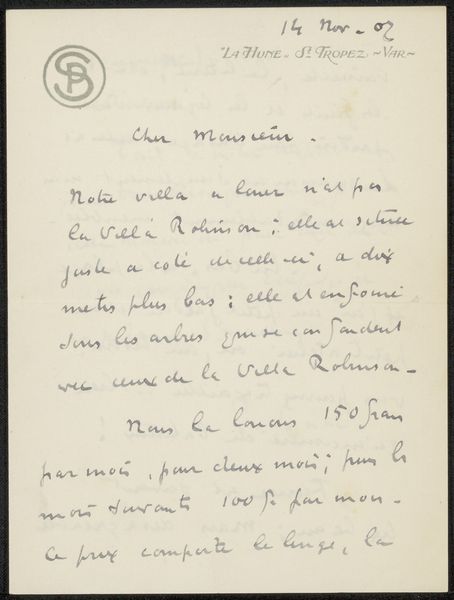 14 Nov - 07
"LA HUNE" ST TROPEZ ~VAR~
SPB
Cher Monsieur.
Notre villa a louer n'est pas
la Villa Robinson; elle est située
juste a coté de celle-ci, a dix
metres plus bas; elle est enfouie
sous les arbres qui se confondent
avec ceux de la Villa Robinson -
Nous la louons 150 francs
par mois, pour deux mois; puis les
mois suivants 100 f par mois -
Le prix comporte le linge, la